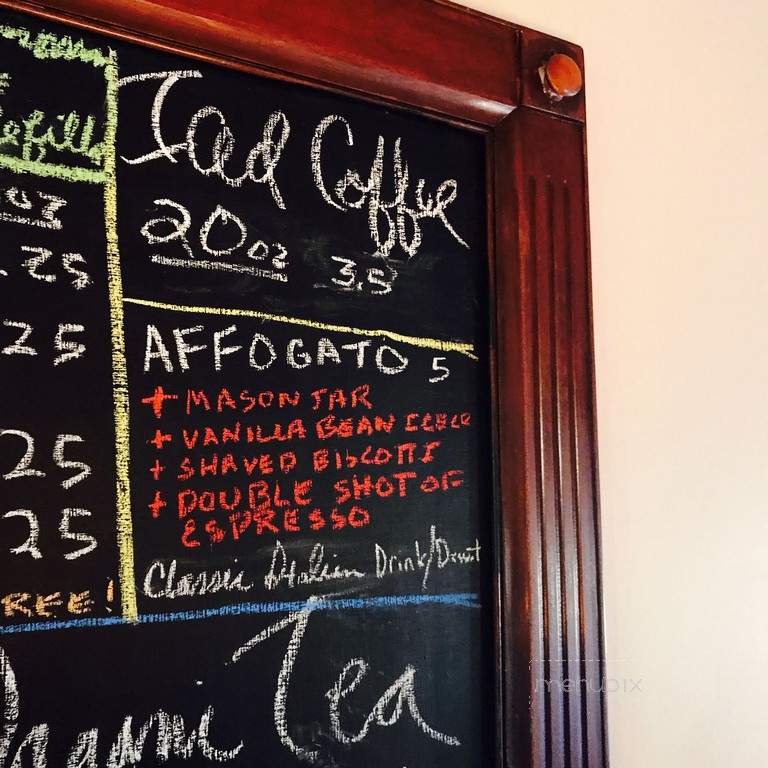 Refills
oz
.25
25
25
25
REE!
Iced Coffee
20oz 3.5
AFFOGATO 5
+ MASON JAR
+ VANILLA BEAN ICECR
+ SHAVED BISCOTTI
+ DOUBLE SHOT OF
ESPRESSO
Classic Italian Drink/
Tea
menupix